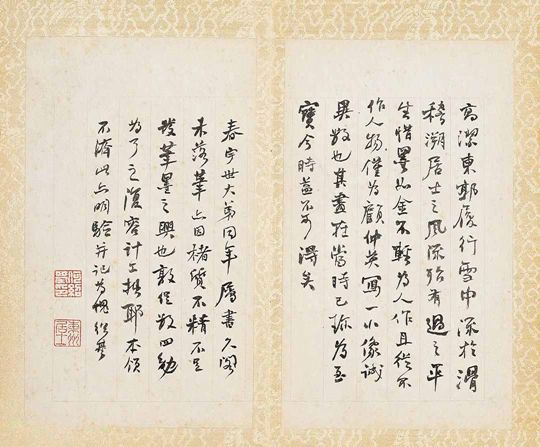 高潔東郭履行雪中深於滑
稽溯居士之風流殆有過之平
生惜墨如金不輕為人作且從不
作人物僅為顧仲英寫一小像誠
異數也其畫在當時已珍為至
寶今時益不可得矣
春宇世大弟同年屬書久閣
未落筆亦因楮質不精不足
發筆墨之興也敦促數四勉
為了之復審計工拙耶本領
不濟此亦明驗并記為愧紹基